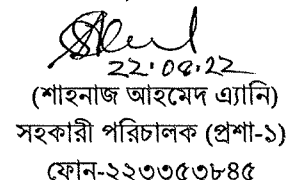 22.08.22
(শাহনাজ আহমেদ এ্যানি)
সহকারী পরিচালক (প্রশা-১)
ফোন-২২৩৩৫৩৮৪৫